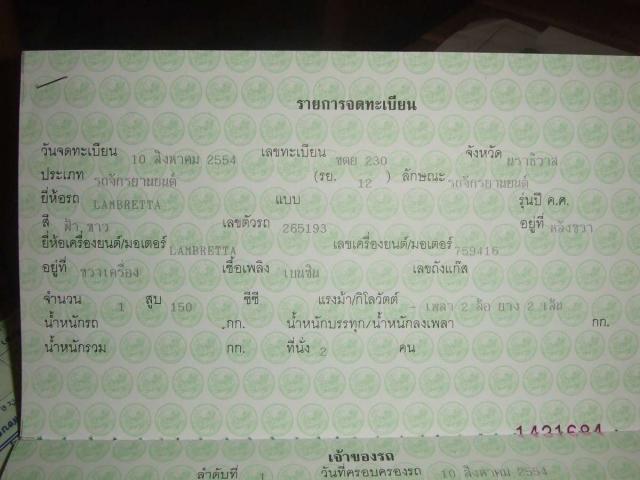 รายการจดทะเบียน
วันจดทะเบียน 10 สิงหาคม 2554 เลขทะเบียน ขตย 230 จังหวัด นราธิวาส
ประเภท รถจักรยานยนต์ (รย. 12 ) ลักษณะ รถจักรยานยนต์
ยี่ห้อรถ LAMBRETTA แบบ รุ่นปี ค.ศ.
สี ฟ้า,ขาว เลขตัวรถ 265193 อยู่ที่ หลังขวา
ยี่ห้อเครื่องยนต์/มอเตอร์ LAMBRETTA เลขเครื่องยนต์/มอเตอร์ 759416
อยู่ที่ ขวาเครื่อง เชื้อเพลิง เบนซิน เลขถังแก๊ส
จำนวน 1 สูบ 150 ซีซี แรงม้า/กิโลวัตต์ - เพลา 2 ล้อ ยาง 2 เส้น
น้ำหนักรถ กก. น้ำหนักบรรทุก/น้ำหนักลงเพลา กก.
น้ำหนักรวม กก. ที่นั่ง 2 คน
1421684
เจ้าของรถ
ลำดับที่ 1 วันที่ครอบครองรถ 10 สิงหาคม 2554